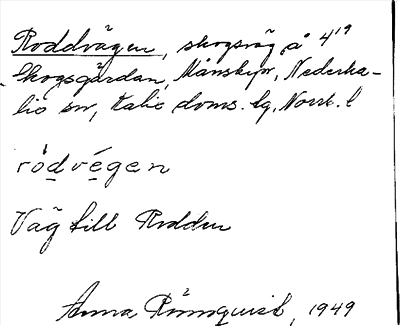 Roddvägen, skogsväg å 4¹⁹
Skogsgärdan, Månsbyn, Nederka-
lix sn, Kalix doms. lg, Norrb. l
ródvégen
Väg till Rodden
Anna Rönnquist, 1949